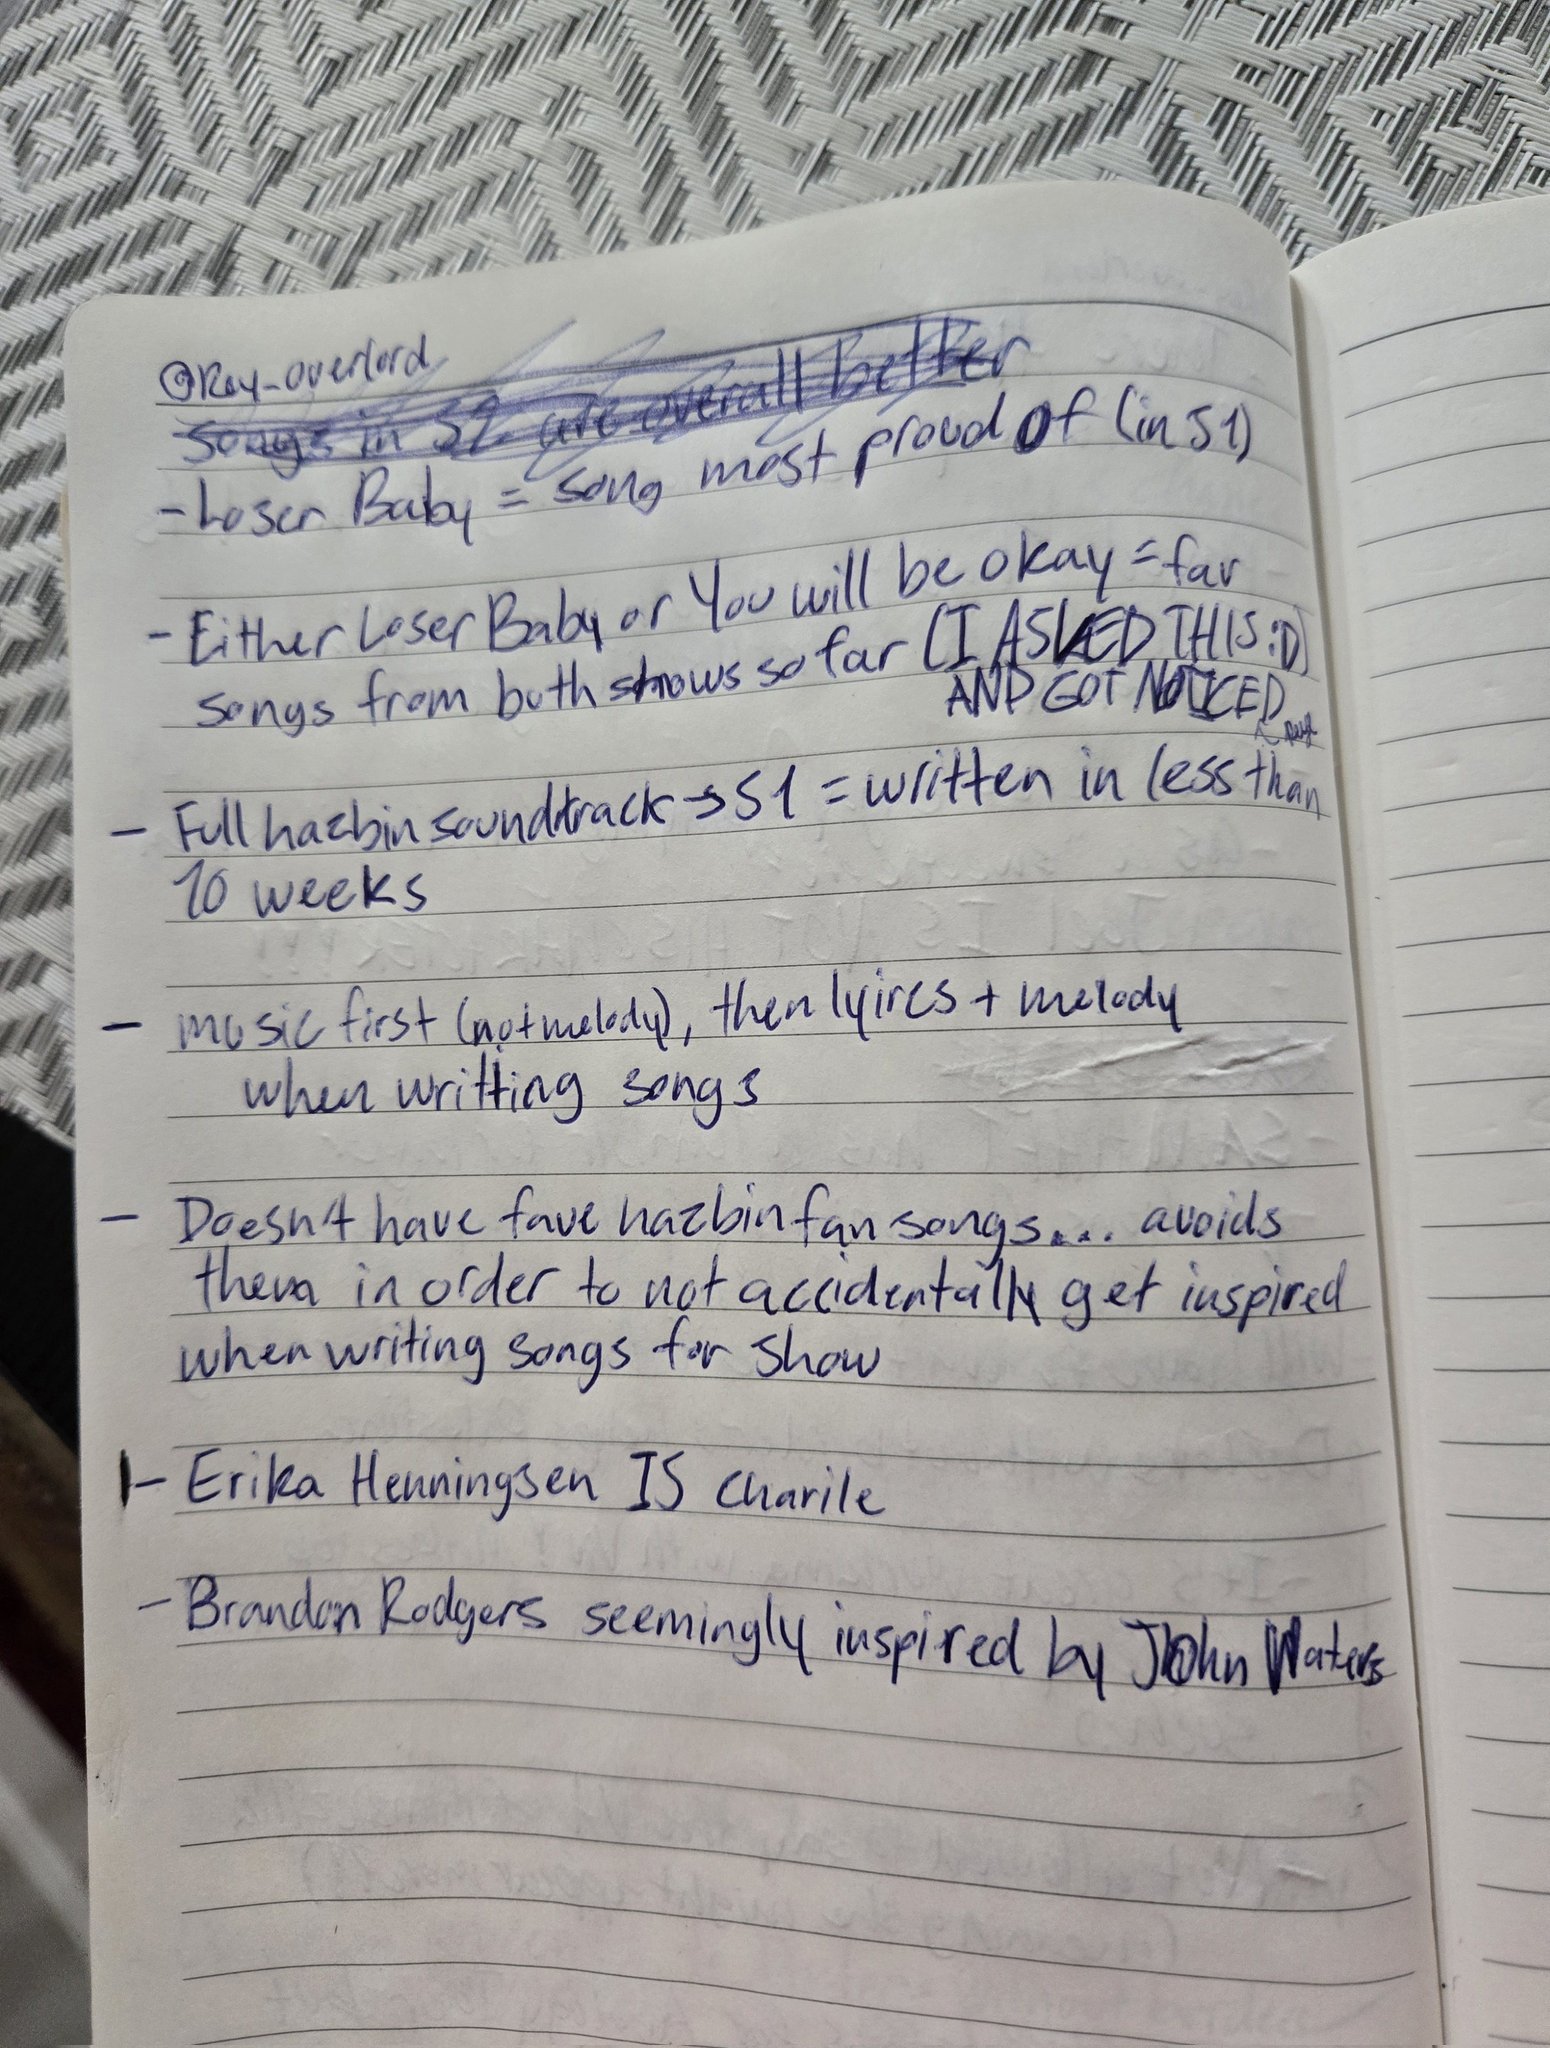 @Ray-overlord
songs in S2 are overall better
- Loser Baby = song most proud of (in S1)
- Either Loser Baby or You will be okay = fav
songs from both shows so far (I ASKED THIS :D)
AND GOT NOTICED
- Full hazbin soundtrack → S1 = written in less than
10 weeks
- music first (not melody), then lyircs + melody
when writting songs
- Doesn't have fave hazbin fan songs.... avoids
them in order to not accidentally get inspired
when writing songs for show
- Erika Henningsen IS Charile
- Brandon Rodgers seemingly inspired by John Waters